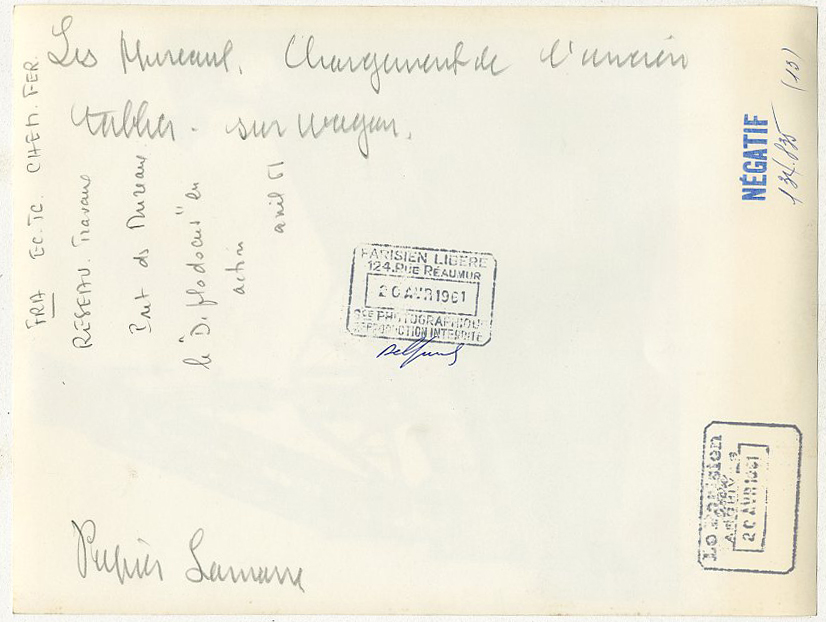 Les Mureaux. Chargement de l'ancien
tablier - sur wagon.
FRA EC.TC. CHEM. FER.
RÉSEAU. Travaux
Pont des Mureaux
le "Diplodocus" en
action
avril 61
NÉGATIF
134.835 (13)
PARISIEN LIBÉRÉ
124, RUE RÉAUMUR
20 AVR 1961
SCE PHOTOGRAPHIQUE
REPRODUCTION INTERDITE
Le Parisien
ARCHIVES
20 AVR 1961
Papier Lamarre